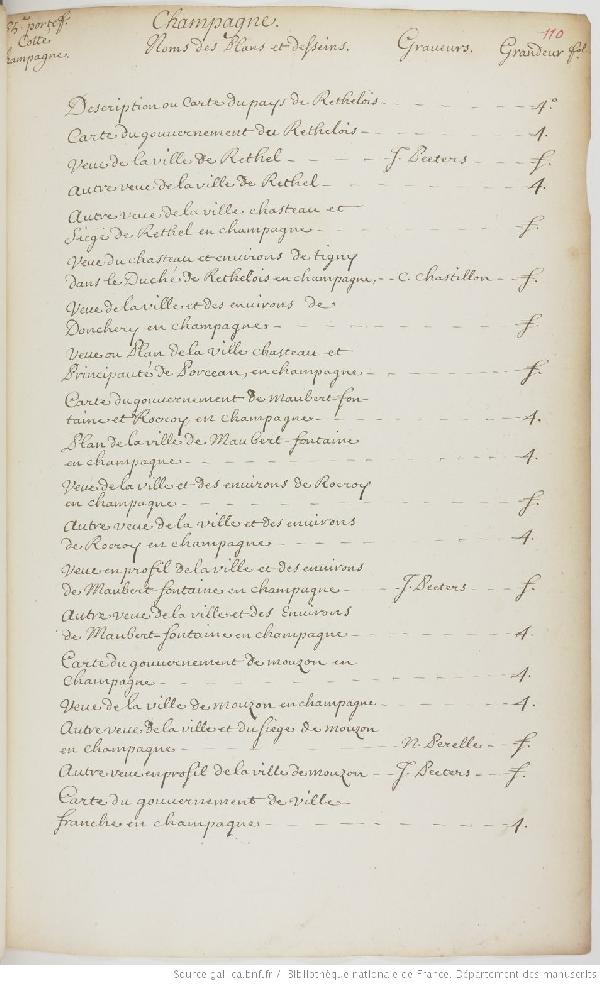 Champagne.
110
portef.
Cotte
Champagne.
Noms des Plans et desseins. Graveurs. Grandeur fol.
Description ou Carte du pays de Rethelois - - - - 4°
Carte du gouvernement du Rethelois - - - - 4.
Veue de la ville de Rethel - - - - J. Peeters - - f.
Autre veue de la ville de Rethel - - - - 4.
Autre veue de la ville chasteau et
Siége de Rethel en champagne - - - - f.
Veue du chasteau et environs de tigny
dans le Duché de Rethelois en champagne, - - C. Chastillon - - f.
Veue de la ville et des environs de
Donchery en champagne - - - - f.
Veue ou Plan de la ville chasteau et
Principauté de Porcean, en champagne - - - - f.
Carte du gouvernement de Maubert-fon-
taine et Rocroy en champagne - - - - 4.
Plan de la ville de Maubert-fontaine
en champagne - - - - 4.
Veue de la ville et des environs de Rocroy
en champagne - - - - f.
Autre veue de la ville et des environs
de Rocroy en champagne - - - - 4.
Veue en profil de la ville et des environs
de Maubert-fontaine en champagne - - J. Peeters - - f.
Autre veue de la ville et des Environs
de Maubert-fontaine en champagne - - - - 4.
Carte du gouvernement de mouzon en
Champagne - - - - 4.
Veue de la ville de mouzon en champagne - - - - 4.
Autre veue de la ville et du siége de mouzon
en champagne - - - - N. Perelle - - f.
Autre veue en profil de la ville de mouzon - - J. Peeters - - f.
Carte du gouvernement de Ville-
franche en champagne - - - - 4.
Source gallica.bnf.fr / Bibliothèque nationale de France. Département des manuscrits